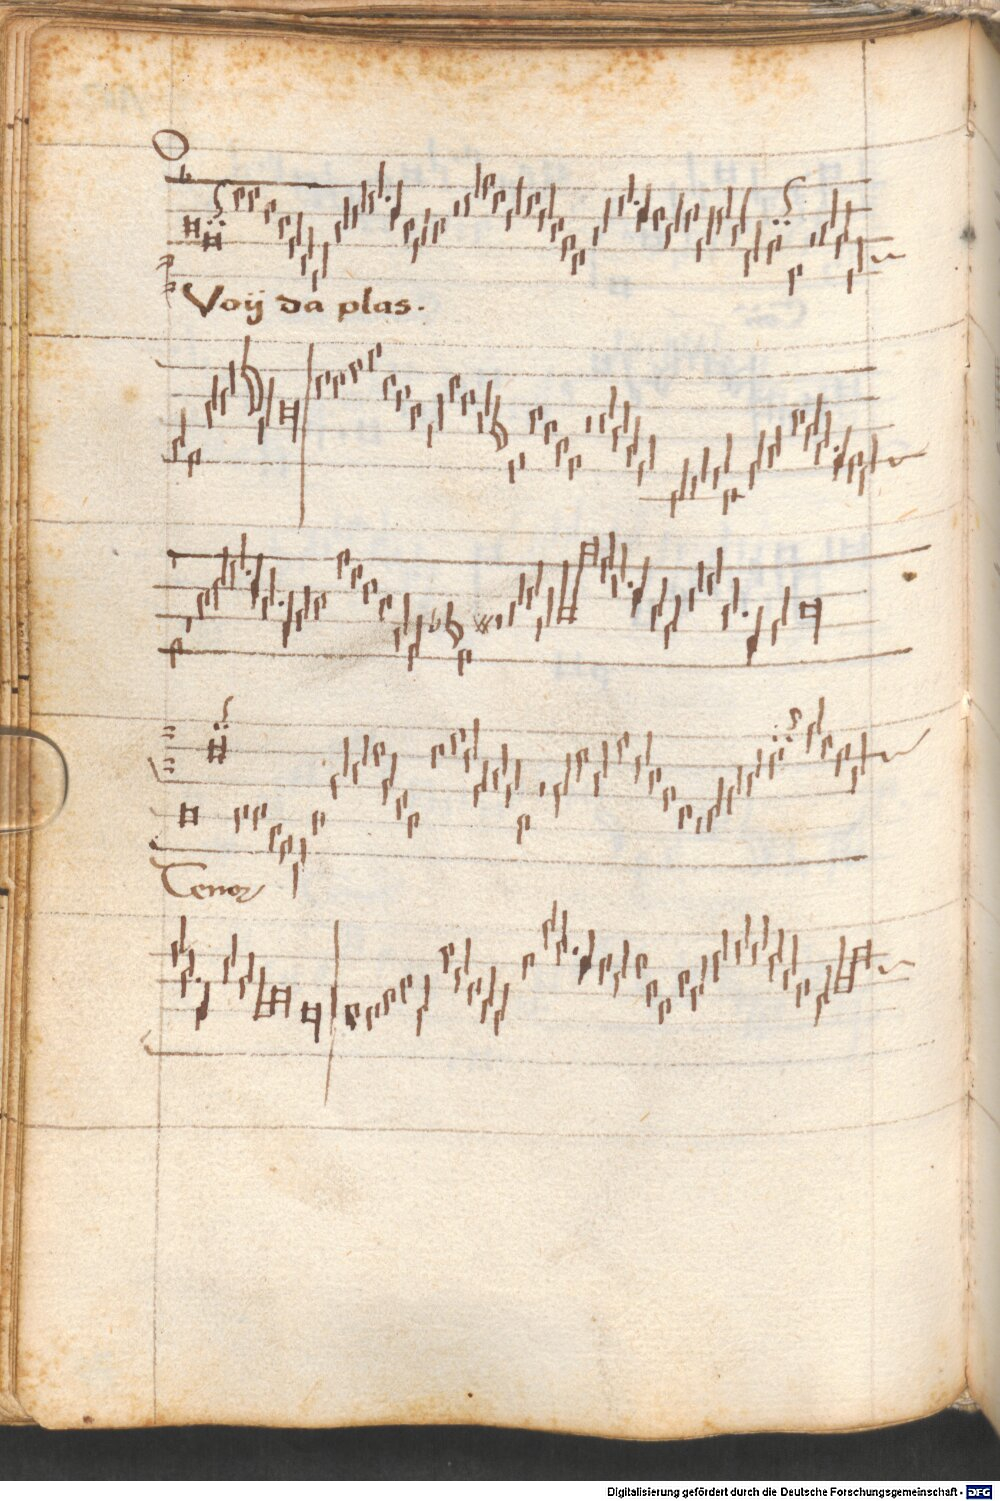 Voÿ da plas.
Tenor
Digitalisierung gefördert durch die Deutsche Forschungsgemeinschaft - DFG